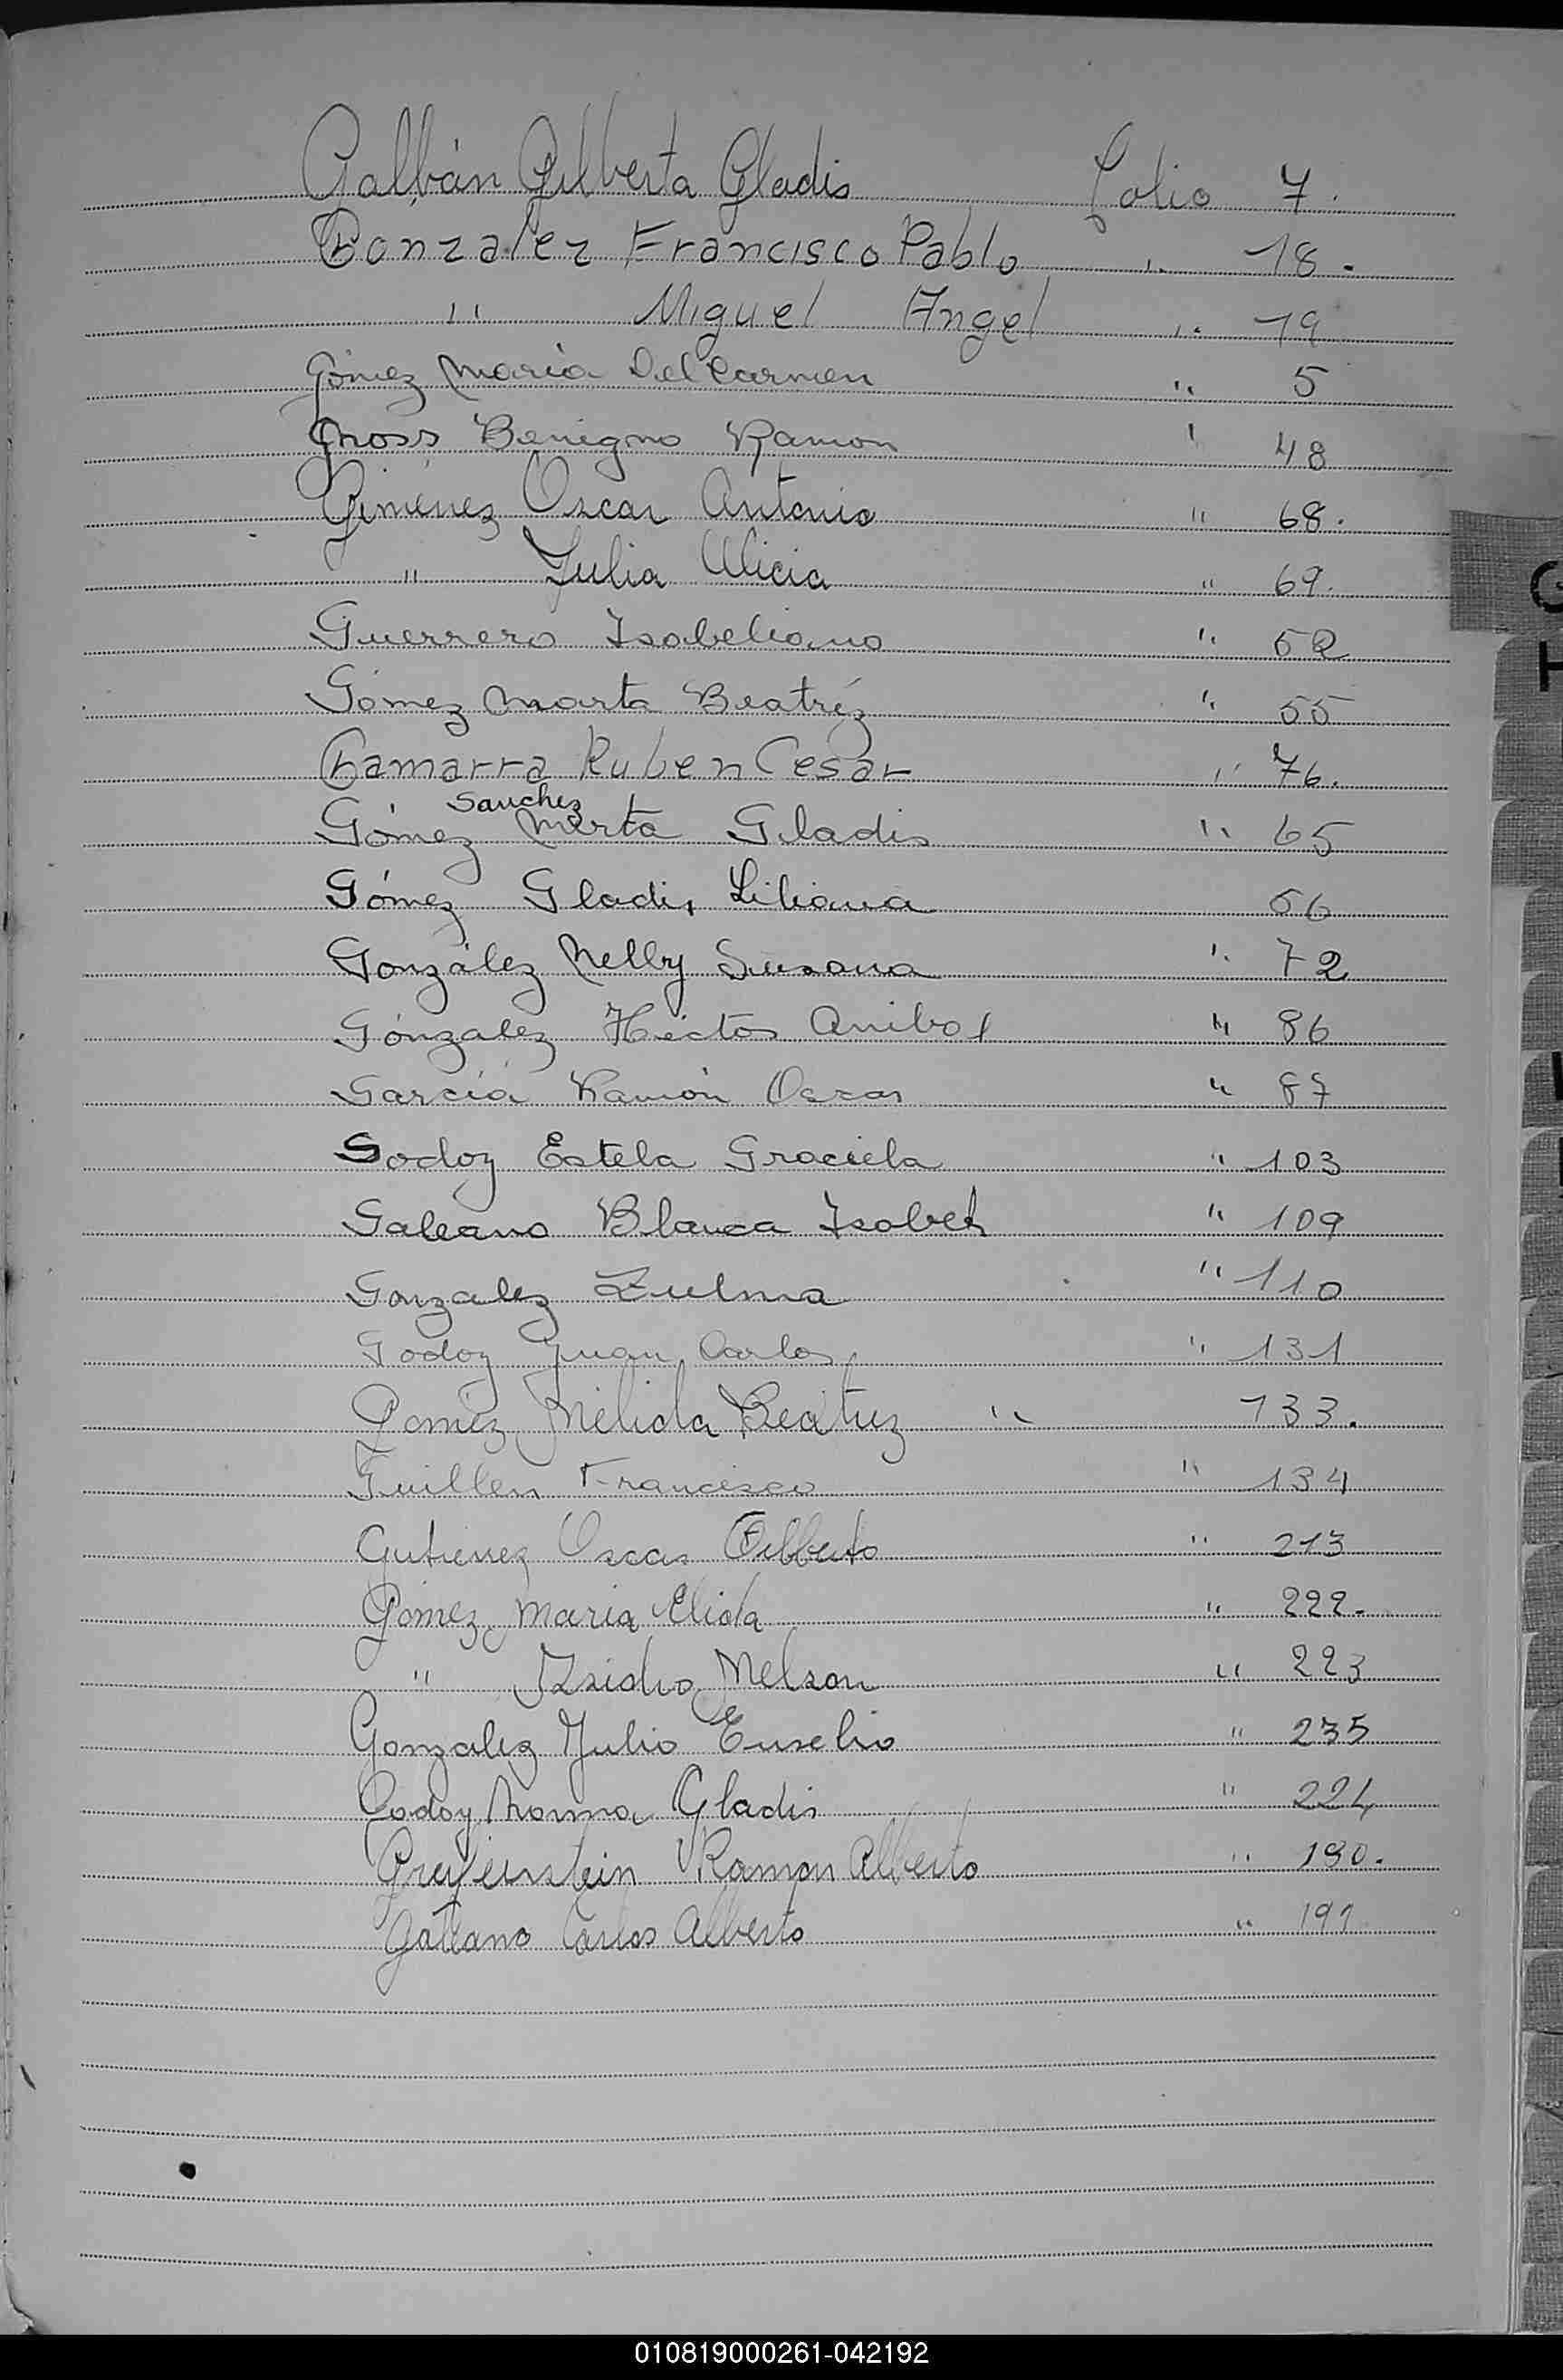 Galbán Gilberta Gladis Folio 7.
González Francisco Pablo " 18.
" Miguel Angel " 19
Gómez María Del Carmen " 5
Gross Benigno Ramon " 48
Giménez Oscar Antonio " 68.
" Julia Alicia " 69.
Guerrero Isabeliano " 52
Gómez Marta Beatríz " 55
Gamarra Ruben Cesar " 76.
Sanchez
Gómez Mirta Gladis " 65
Gómez Gladis Liliana 66
González Nelly Susana " 72
Gónzalez Héctor Anibal " 86
García Ramón Oscar " 87
Godoy Estela Graciela " 103
Galeano Blanca Isabel " 109
Gonzalez Zulma " 110
Godoy Juan Carlos " 131
Gomez Nélida Beatriz " 133.
Guillen Francisco " 134
Gutierrez Oscar Gilberto " 213
Gómez Maria Elida " 222.
" Isidro Nelson " 223
Gonzalez Julio Eusebio " 235
Godoy Norma Gladis " 224
Ramon Alberto " 190.
Galeano Carlos Alberto " 191
G
H
010819000261-042192